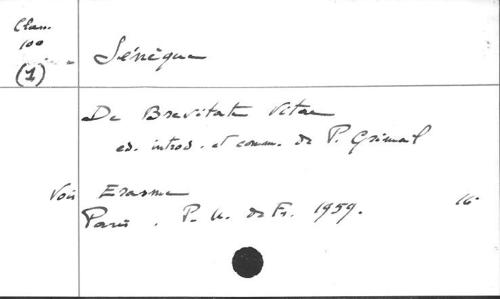 Clas.
100
(1)
Sénèque
De Brevitate Vitae
ed. introd. et comm. de P. Grimal
Voir Erasme
Paris. P. U. de Fr. 1959. 16°